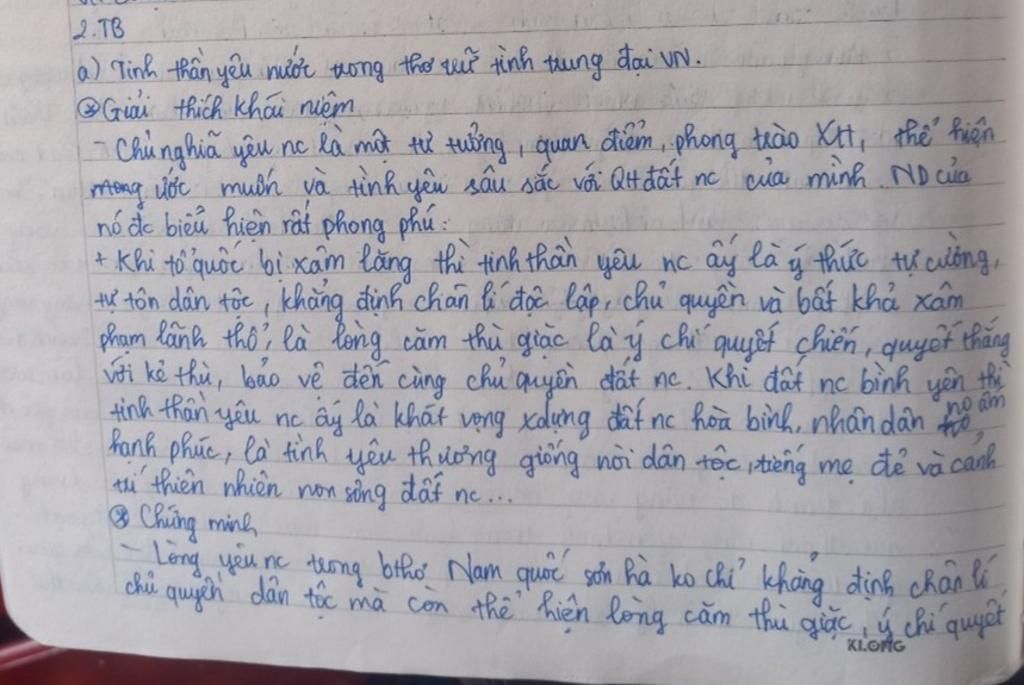 2. TB
a) Tinh thần yêu nước trong thơ trữ tình trung đại VN.
* Giải thích khái niệm
- Chủ nghĩa yêu nc là một tư tưởng, quan điểm, phong trào XH, thể hiện
ước muốn và tình yêu sâu sắc với QH đất nc của mình. ND của
nó đc biểu hiện rất phong phú:
+ Khi tổ quốc bị xâm lăng thì tinh thần yêu nc ấy là ý thức tự cường,
tự tôn dân tộc, khẳng định chân lí độc lập, chủ quyền và bất khả xâm
phạm lãnh thổ, là lòng căm thù giặc là ý chí quyết chiến, quyết thắng
với kẻ thù, bảo vệ đến cùng chủ quyền đất nc. Khi đất nc bình yên thì
tinh thần yêu nc ấy là khát vọng xdựng đất nc hòa bình, nhân dân no ấm
hạnh phúc, là tình yêu thương giống nòi dân tộc, tiếng mẹ đẻ và cảnh
trí thiên nhiên non sông đất nc...
* Chứng minh
- Lòng yêu nc trong bthơ Nam quốc sơn hà ko chỉ khẳng định chân lí
chủ quyền dân tộc mà còn thể hiện lòng căm thù giặc, ý chí quyết
KLONG